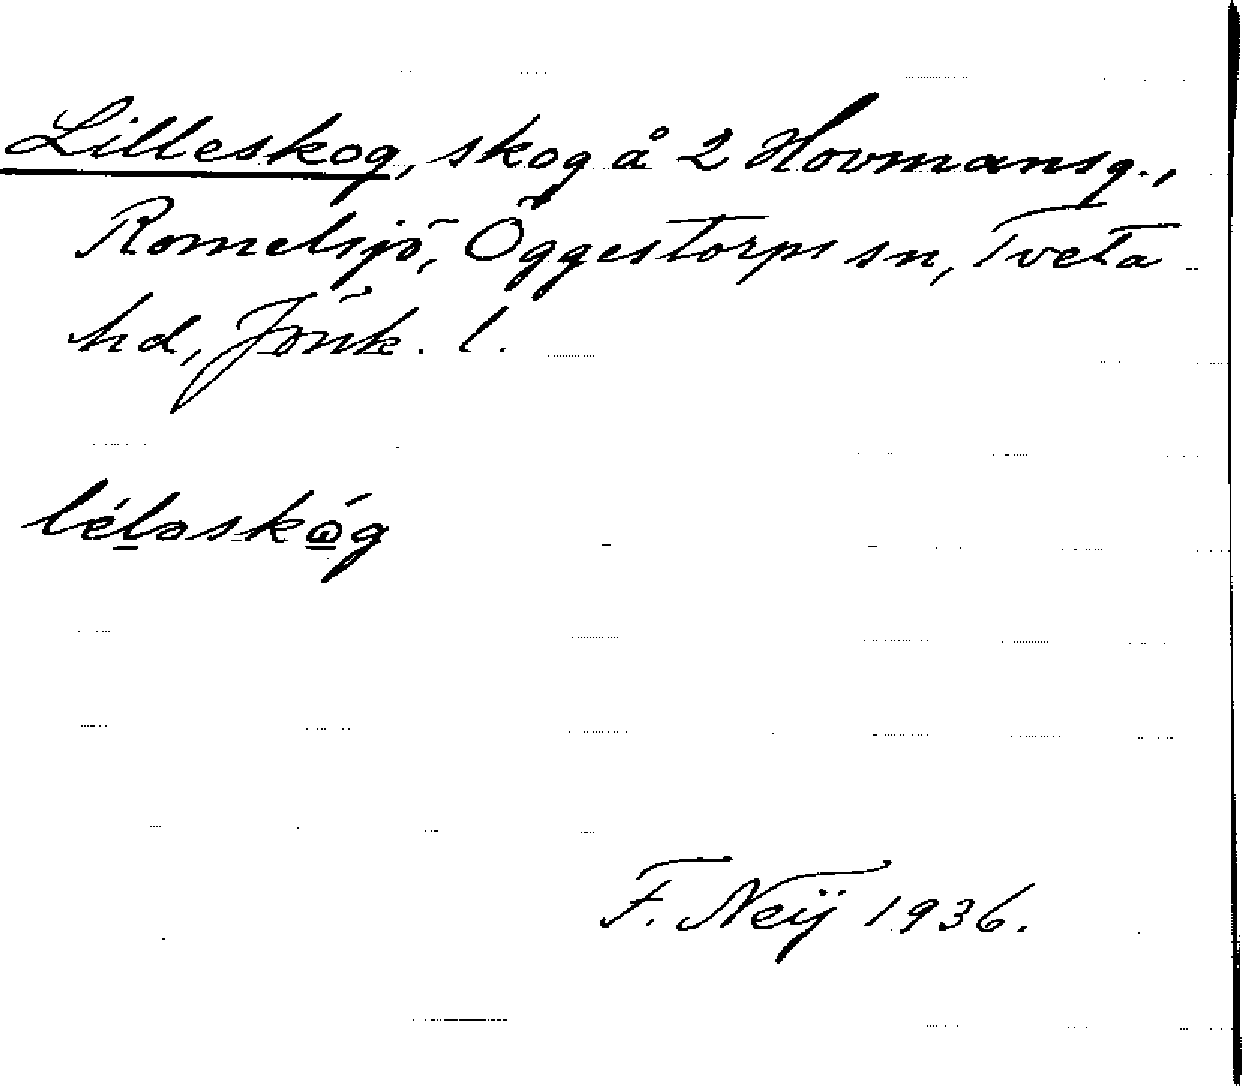 Lilleskog, skog å 2 Hovmansg.,
Romelsjö, Öggestorps sn, Tveta
hd, Jönk. l.
lélaskóg
F. Neij 1936.